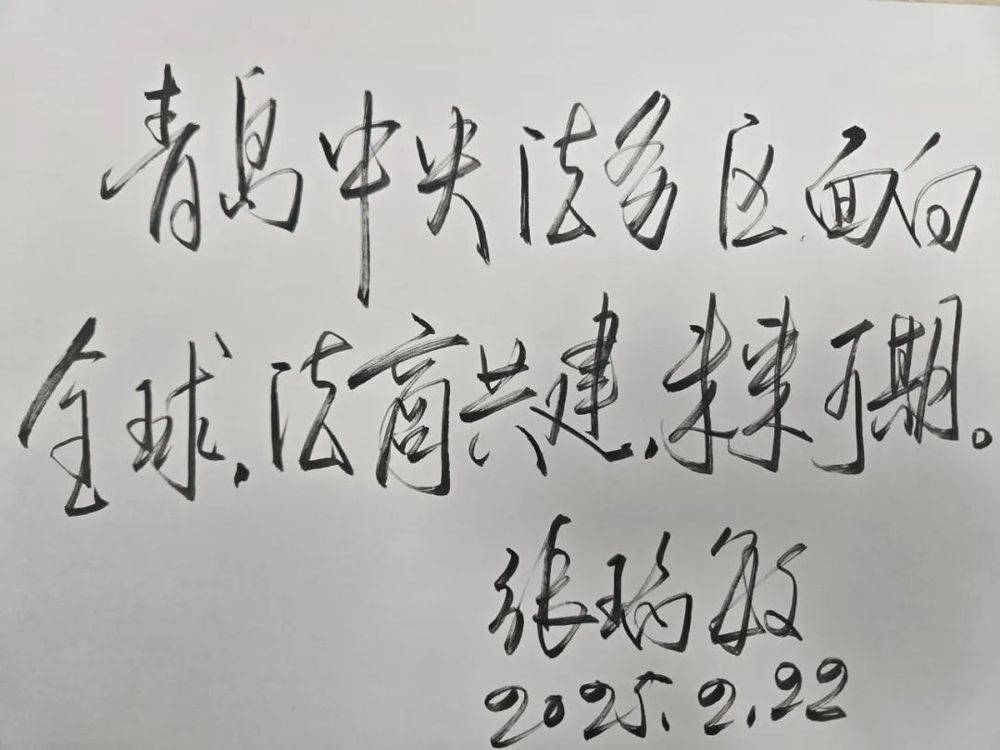 青岛中央法务区面向
全球,法商共建,未来可期。
张瑞敏
2025.2.22